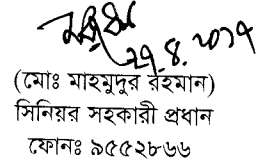 ২৭.৪.২০১৭
(মোঃ মাহমুদুর রহমান)
সিনিয়র সহকারী প্রধান
ফোনঃ ৯৫৫২৮৬৬